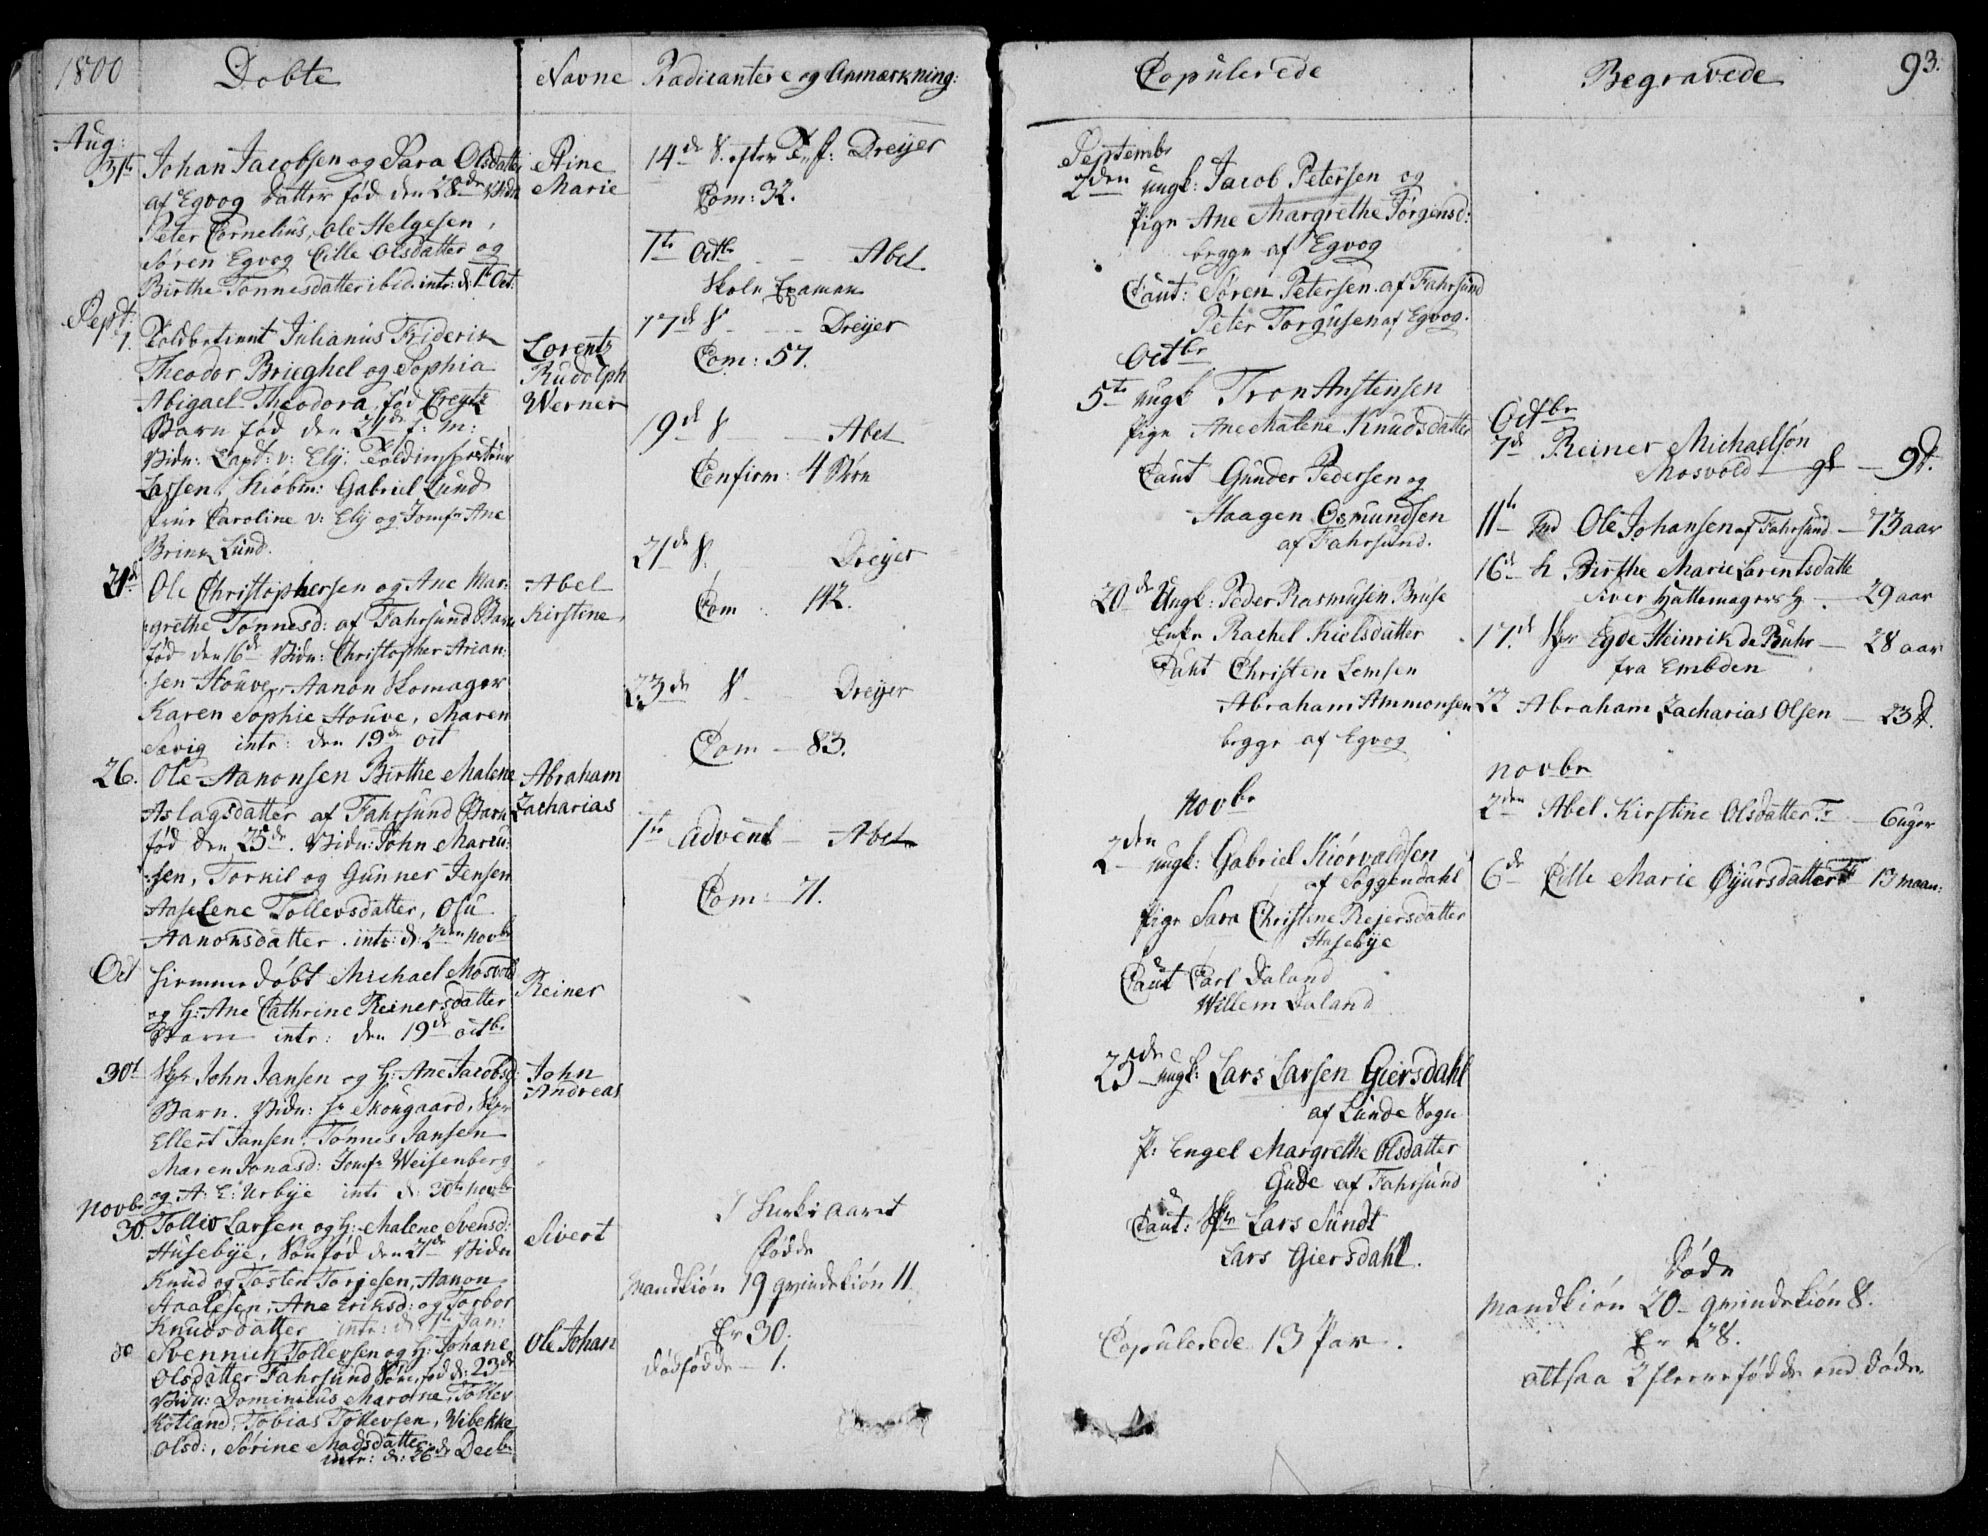 1800
Dobte
Navne
Radicantere og Anmærkning:
Aug:
31te Johan Jacobsen og Sara Olsdatter
af Egvog Datter fød den 28de Vidn
Peter Cornelius, Ole Helgesen,
Søren Egvog Cille Olsdatter og
Birthe Tønnesdatter ibid. intr: d: 1te Oct.
Stine
Marie
Sept:
1. Toldbetient Julianus Friderik
Theodor Brieghel og Sophia
Abigael Theodora, fød Creytz
Barn fød den 21de f: m:
Vidn: Capt: v: Ely. Toldinspecteur
Lassen, Kiøbm: Gabriel Lund
frue Caroline v: Ely og Jomfr Ane
Brine Lund.
Lorentz
Rudolph
Werner
21de Ole Christophersen og Ane Mar:
grethe Tønnesd: af Fahrsund Barn
fød den 16de Vidn: Christopher Arian:
sen Houve, Aanon Skomager
Karen Sophie Houve, Maren
Sævig intr: den 19de Oct
Abel
Kirstine
26. Ole Aanonsen Birthe Malene
Aslagsdatter af Fahrsund Barn
fød den 25de. Vidn: John Marcu:
sen, Torkil og Gunner Jensen
Aase Lene Tollevsdatter, Osu
Aanonsdatter. intr: d: 2den Novbr
Abraham
Zacharias
Oct hiemmedøbt Michael Mosvold
og H: Ane Cathrine Reinersdatter
Barn intr: den 19de Octbr
Reiner
30t Skpr John Jansen og H: Ane Jacobsd:
Barn. Vidn: Hr Skougaard, Skpr
Ellert Jansen, Tønnes Jansen
Maren Jonasd: Jomfr Weisenberg
og A: E: Urbye intr d: 30te Novbr
John
Andreas
Novbr
30. Tolliv Larsen og H: Malene Svensd:
Husebye, Søn fød den 21de Vidn
Knud og Tosten Torjesen, Aanon
Staalesen, Ane Eriksd: og Torbor
Knudsdatter intr: d: 1te Jan:
Sivert
do Svennich Tollevsen og H: Johane
Olsdatter Fahrsund Søn, fød d: 23de
Vidn: Dominicus Marone, Tollev
Kotland, Tobias Tollevsen, Vibekke
Olsd:, Sørine Madsdatter
intr: d: 26de Decbr
Ole Johan
14de S. efter Trf: Dreyer
Com: 32.
1te Octbr - - Abel
Skole Examen
17de S - - Dreyer
Com: 57.
19de S - Abel
Confirm: 4 Børn
21de S. Dreyer
Com: 142.
23de S - - Dreyer
Com - 83.
1te Advent - Abel
Com: 71.
I Kirke aaret
fødde
Mandkiøn 19 qvindekiøn 11
Er 30.
dødfødde - 1.
Copulerede
Septembr
2den ungk: Jacob Petersen og
pige Ane Margrethe Jørgensd:
begge af Egvog
Caut: Søren Petersen af Fahrsund
Peter Torgusen af Egvog.
Octbr
5te ungk Tron Anstensen
pige Ane Malene Knudsdatter
Caut Gunder Pedersen og
Haagen Osmundsen
af Fahrsund.
20de Ungk: Peder Rasmusen Bruse
Enke Rachel Kielsdatter
Caut Christen Lemsen
Abraham Ammonsen
begge af Egvog
Novbr
2den ungk: Gabriel Kiørvaldsen
af Soggendahl
pige Sara Christine Rejersdatter
Husebye
Caut Carl Daland
Willem Daland
25de ungk: Lars Larsen Giersdahl
af Lunde Sogn
P: Engel Margrethe Olsdatter
Gude af Fahrsund
Caut: Skpr Lars Sundt
Lars Giersdahl.
Copulerede 13 Par.
Begravede
93.
Octbr
7de Reiner Michaelson
Mosvold - gl - 9 d.
11te Ole Johansen af Fahrsund - 73 aar
16de h. Birthe Marie Lorentsdatte
Siver Hattemagers H. - 29 aar
17de Skpr Egde Heinrik de Buhr - 28 aar
fra Embden
22 Abraham Zacharias Olsen - 23 d.
Novbr
2den Abel Kirstine Olsdatter Fr - 6 uger
6de Cille Marie Øyursdatter F 13 maan:
Døde
Mandkiøn 20 - qvindekiøn 8.
Er 28.
altsaa 2 fleere fødde end døde.